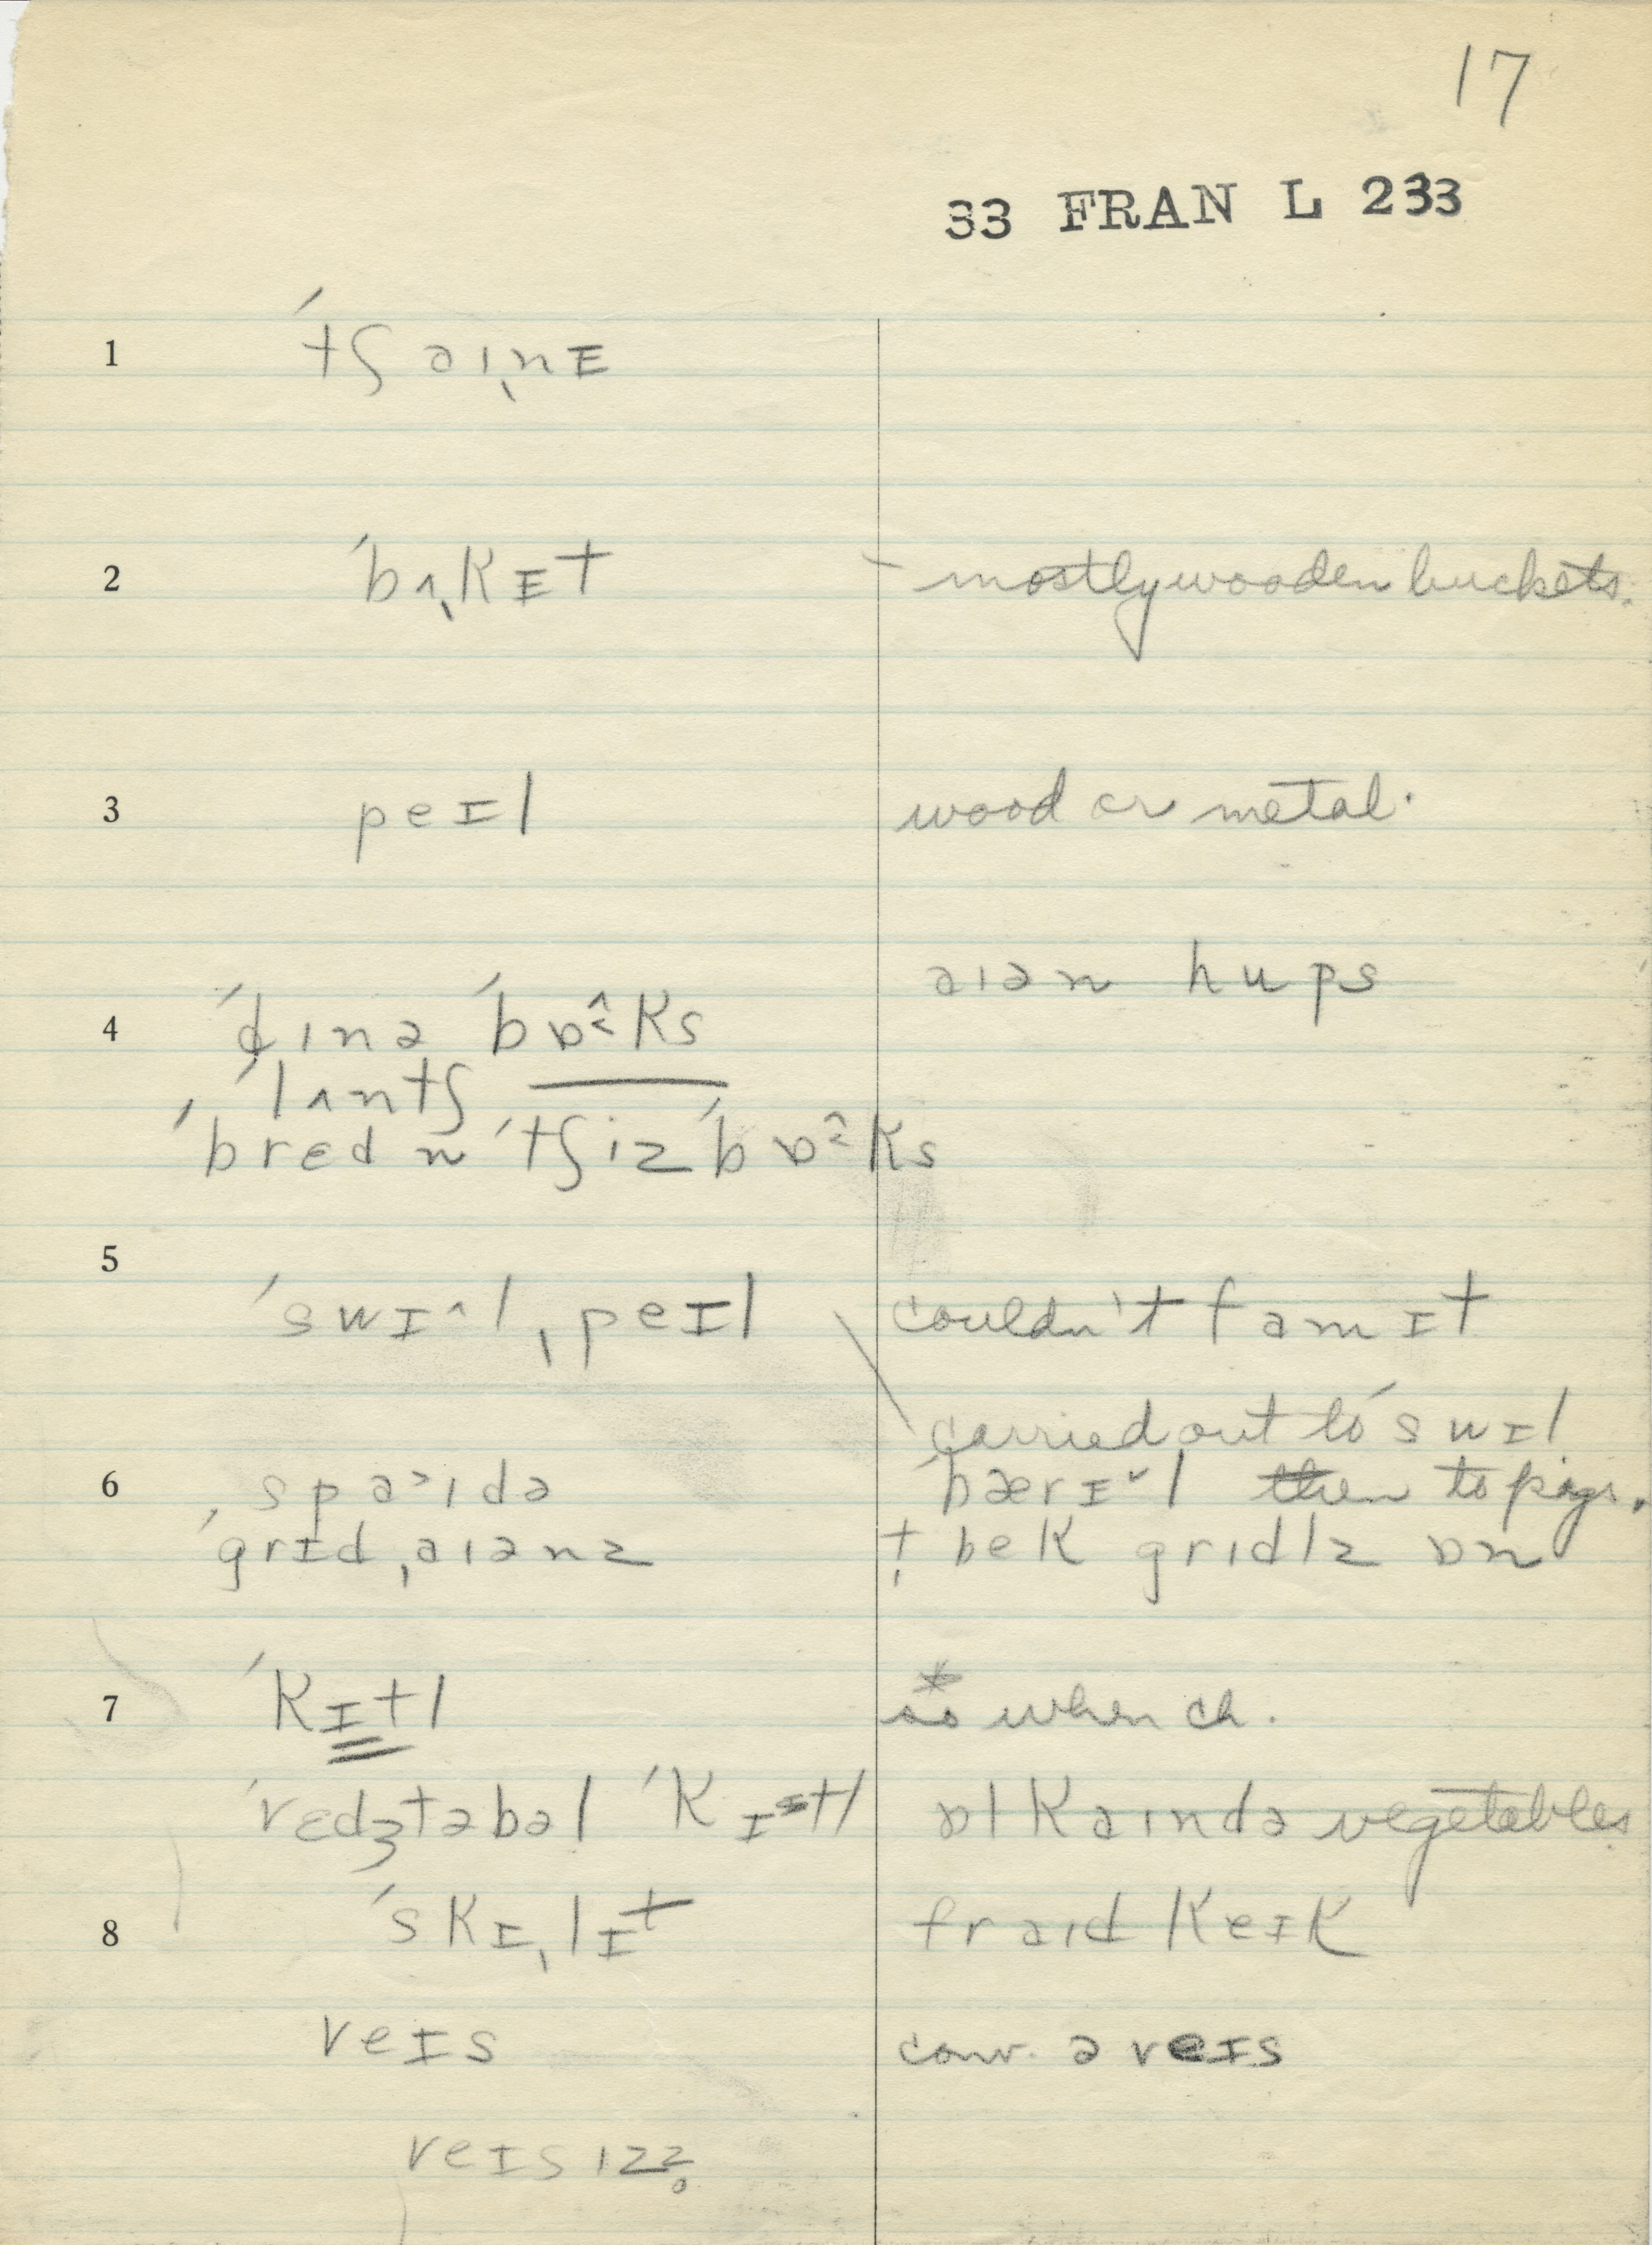 17
33 FRAN L 233
1 ˈtʃaiˌnɪ
2 ˈbʌˌkɪt - mostly wooden buckets.
3 peɪl wood or metal.
aiən hups
4 ˈdinə ˈbɒ˂ks
ˈlʌntʃ
ˈbred n ˈtʃiz ˈbɒ˂ks
5
ˈswɪ^l ˌpeɪl couldn't famɪt
carried out to ˈswɪl
6 ˌspa˃idə ˈbærɪ˅l then to pigs.
ˈgrɪdˌaiənz t bek gridlz ɒn
7 ˈkɪtl * so when ch.
ˈvedʒtəbəl ˈkɪtl ɒl kaində vegetables
8 ˈskɪˌlɪt fraid keɪk
veɪs conv. ə veɪs
veɪsiz̥